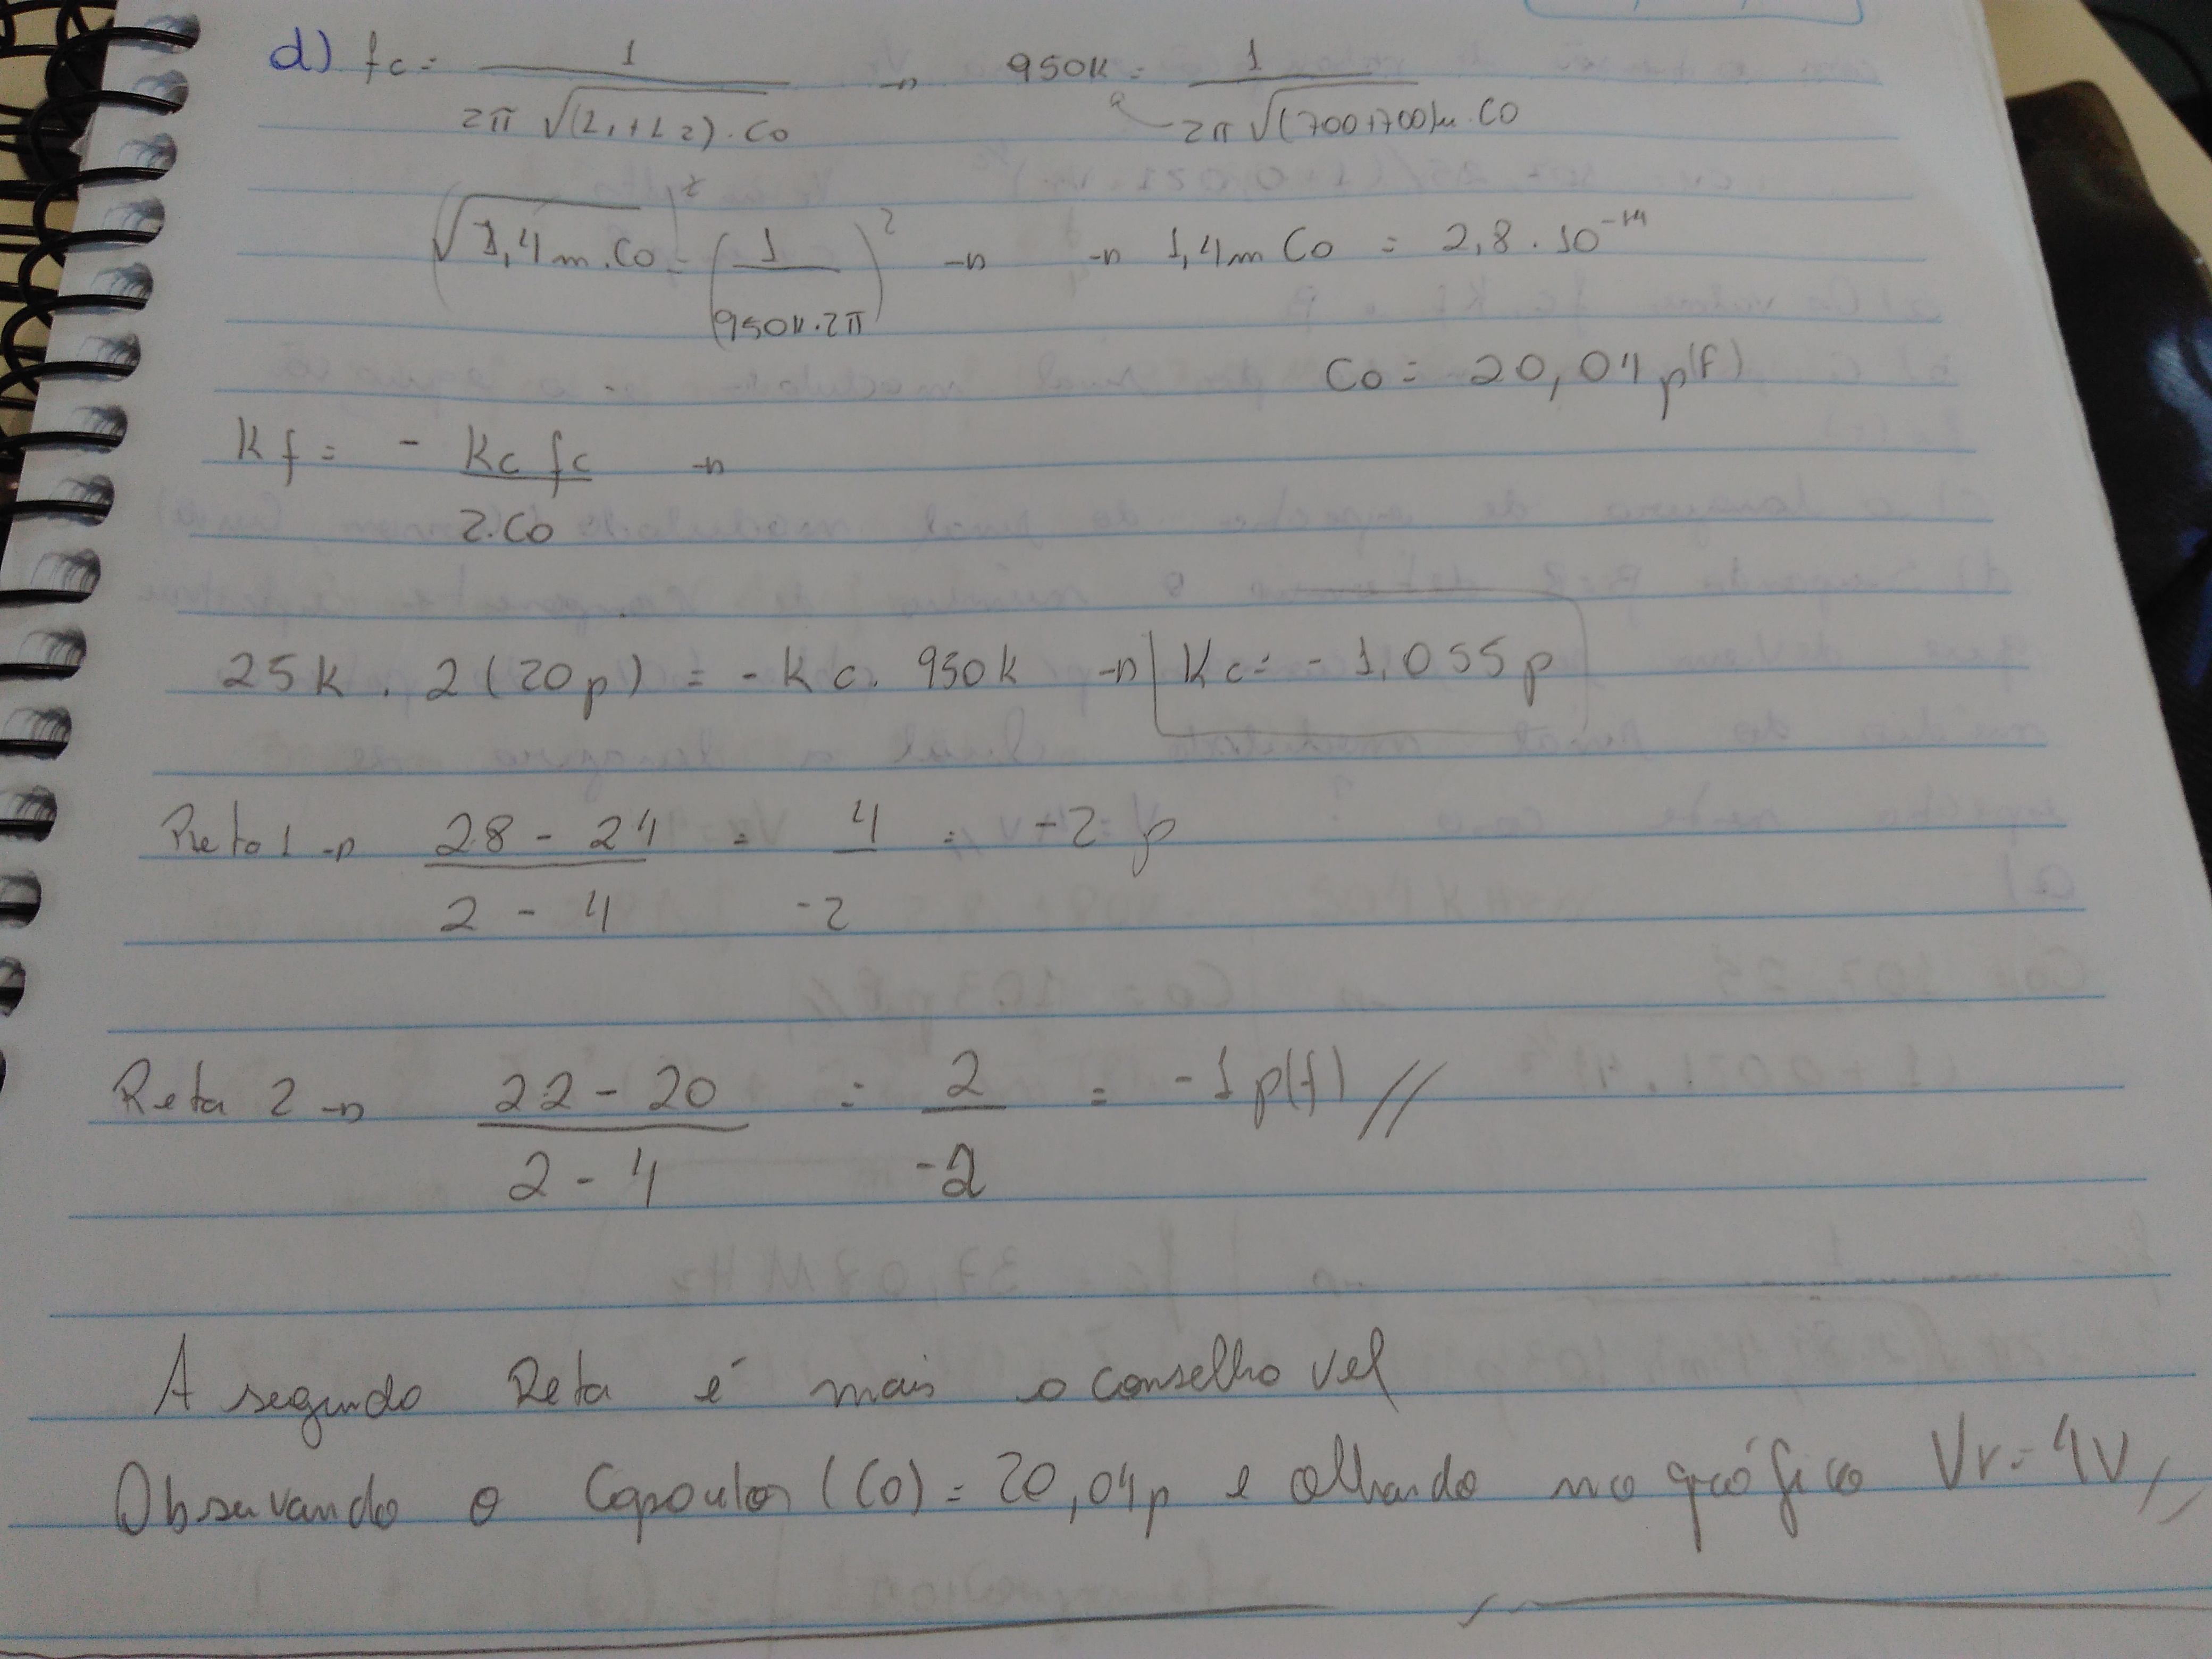 d) fc = 1 / 2π √(L1+L2).Co → 950K = 1 / 2π √(700+700)µ.Co
(√1,4m.Co)² = (1 / 950K.2π)² → → 1,4m Co = 2,8.10⁻¹⁴
Co = 20,04 p(f)
Kf = - Kc fc / 2.Co →
25K . 2(20p) = -Kc. 950k → Kc = -1,055p
Reta 1 → 28 - 24 / 2 - 4 = 4 / -2 = -2 p
Reta 2 → 22 - 20 / 2 - 4 = 2 / -2 = -1 p(f) //
A segunda Reta é mais aconselhavel
Observando o Capacitor (Co) = 20,04p e olhando no gráfico Vr = 4V //